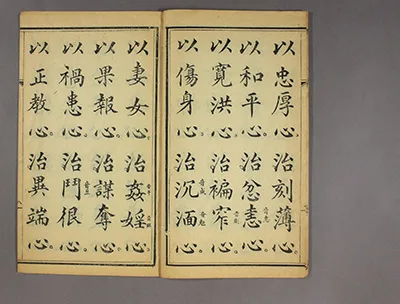 以忠厚心。治刻薄心。
以和平心。治忿恚心。
以寬洪心。治褊窄心。
以傷身心。治沉湎心。
以妻女心。治姦婬心。
以果報心。治謀奪心。
以禍患心。治鬥很心。
以正教心。治異端心。